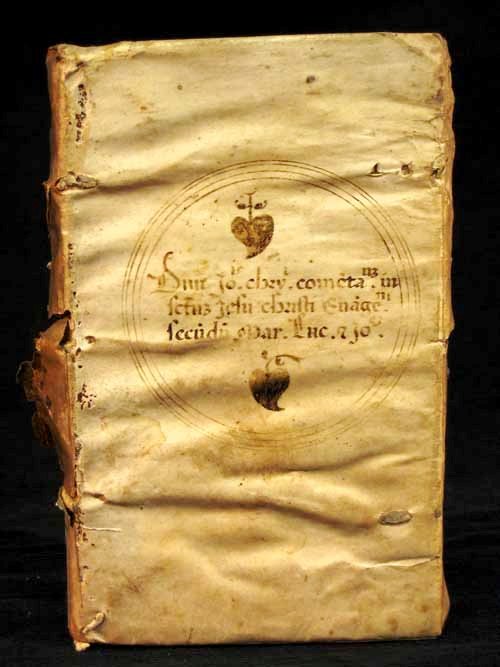 Diui Joˢ. chryˢ. comētaᵐ. in
sctūꝫ Jesu christi Euāgeᵐ
secūdū Mar. Luc. ⁊ Joᵉ.